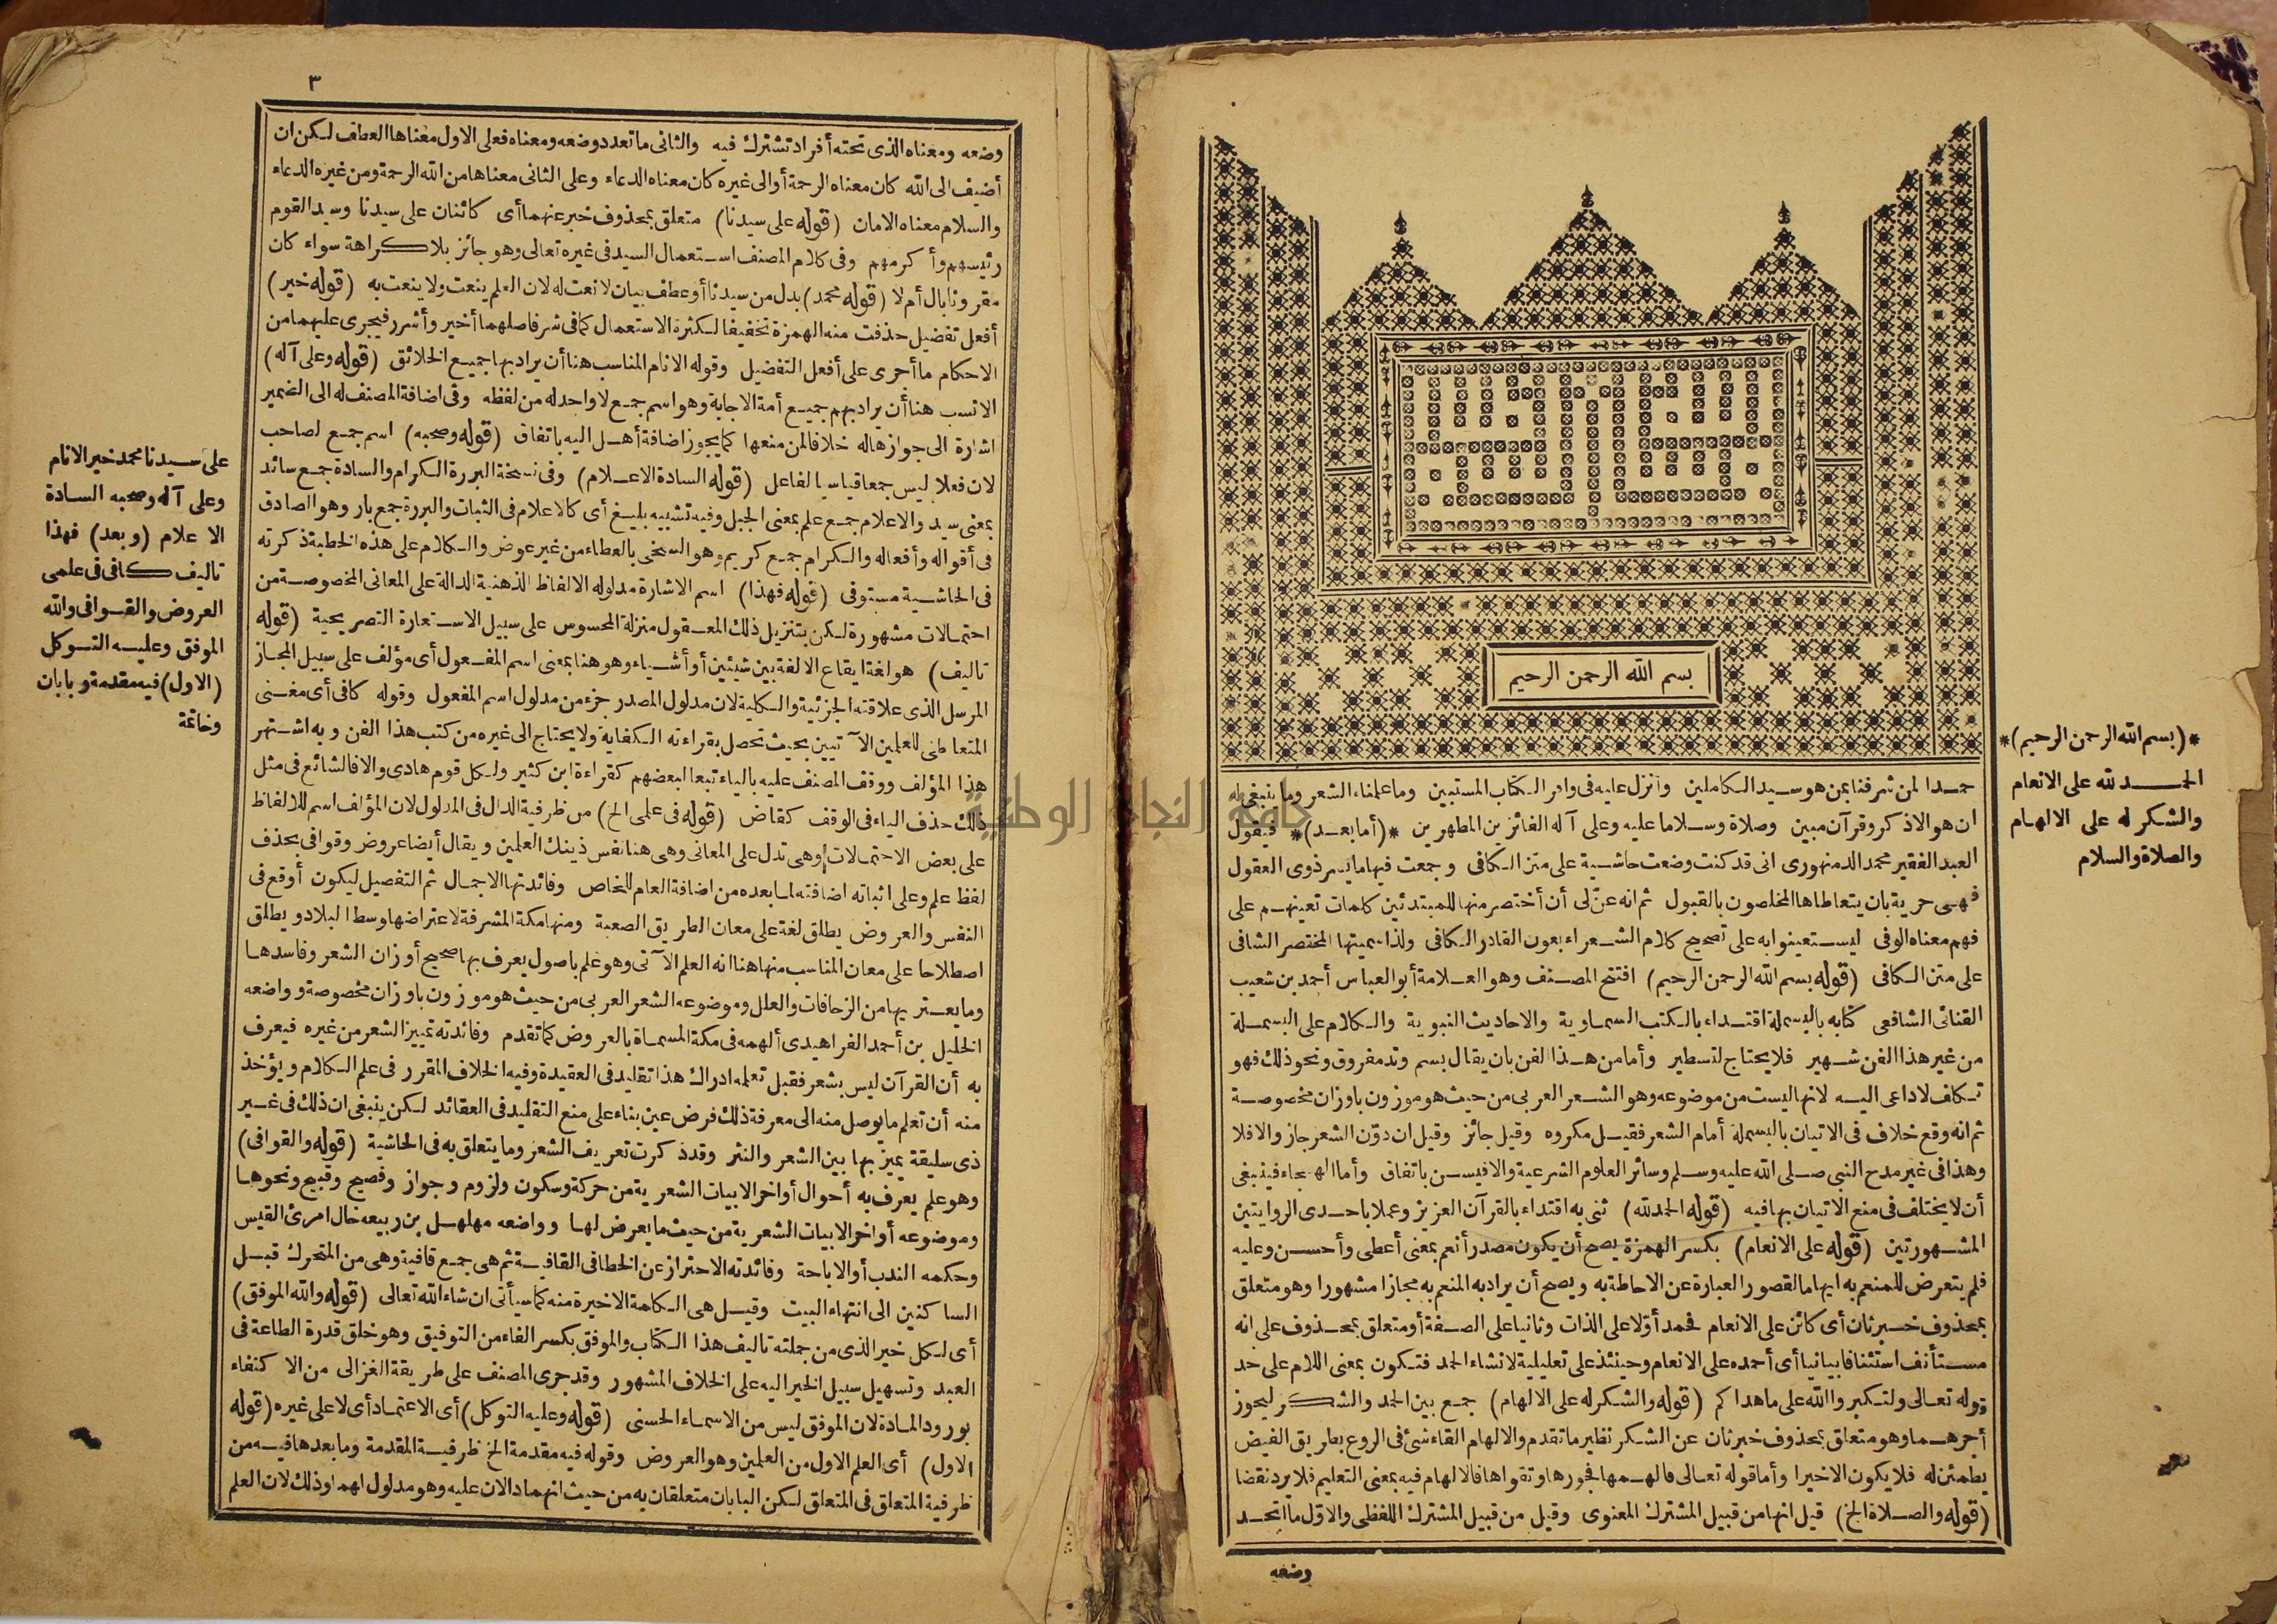 بسم الله الرحمن الرحيم
*(بسم الله الرحمن الرحيم)*
الحمد لله على الانعام
والشكر له على الالهام
والصلاة والسلام
حمدا لمن شرفنا بمن هو سيد الكاملين وأنزل عليه في وافر الكتاب المستبين وما علمناه الشعر وما ينبغي له
ان هو الا ذكر وقرآن مبين وصلاة وسلاما عليه وعلى آله الفائزين المطهرين *(أما بعد)* فيقول
العبد الفقير محمد الدمنهورى انى قد كنت وضعت حاشية على متن الكافى وجمعت فيها ما يسر ذوى العقول
فهى حرية بان يتعاطاها المخلصون بالقبول ثم انه عنّ لى أن أختصر منها للمبتدئين كلمات تعينهم على
فهم معناه الوفى ليستعينوا به على تصحيح كلام الشعراء بعون القادر الكافى ولذا سميتها المختصر الشافى
على متن الكافى (قوله بسم الله الرحمن الرحيم) افتتح المصنف وهو العلامة أبو العباس أحمد بن شعيب
القنائى الشافعى كتابه بالبسملة اقتداء بالكتب السماوية والاحاديث النبوية والكلام على البسملة
من غير هذا الفن شهير فلا يحتاج لتسطير وأما من هذا الفن بان يقال بسم وتد مفروق ونحو ذلك فهو
تكلف لا داعى اليه لانها ليست من موضوعه وهو الشعر العربى من حيث هو موزون باوزان مخصوصة
ثم انه وقع خلاف فى الاتيان بالبسملة أمام الشعر فقيل مكروه وقيل جائز وقيل ان دوّن الشعر جاز والا فلا
وهذا فى غير مدح النبى صلى الله عليه وسلم وسائر العلوم الشرعية والا فيسن باتفاق وأما الهجاء فينبغى
أن لا يختلف فى منع الاتيان بها فيه (قوله الحمد لله) ثنى به اقتداء بالقرآن العزيز وعملا باحدى الروايتين
المشهورتين (قوله على الانعام) بكسر الهمزة يصح أن يكون مصدر أنعم بمعنى أعطى وأحسن وعليه
فلم يتعرض للمنعم به ايهاما لقصور العبارة عن الاحاطة به ويصح أن يراد به المنعم به مجازا مشهورا وهو متعلق
بمحذوف خبر ثان أى كائن على الانعام فحمد أوّلا على الذات وثانيا على الصفة أو متعلق بمحذوف على انه
مستأنف استئنافا بيانيا أى أحمده على الانعام وحينئذ على تعليلية لانشاء الحمد فتكون بمعنى اللام على حد
قوله تعالى ولتكبروا الله على ما هداكم (قوله والشكر له على الالهام) جمع بين الحمد والشكر ليحوز
أجرهما وهو متعلق بمحذوف خبر ثان عن الشكر نظير ما تقدم والالهام القاء شئ فى الروع بطريق الفيض
يطمئن له فلا يكون الا خيرا وأما قوله تعالى فالهمها فجورها وتقواها فالالهام فيه بمعنى التعليم فلا يرد نقضا
(قوله والصلاة الخ) قيل انها من قبيل المشترك المعنوى وقيل من قبيل المشترك اللفظى والاوّل ما اتحد
وضعه
٣
وضعه ومعناه الذى تحته أفراد تشترك فيه والثانى ما تعدد وضعه ومعناه فعلى الاول معناها العطف لكن ان
أضيف الى الله كان معناه الرحمة أو الى غيره كان معناه الدعاء وعلى الثانى معناها من الله الرحمة ومن غيره الدعاء
والسلام معناه الامان (قوله على سيدنا) متعلق بمحذوف خبر عنهما أى كائنان على سيدنا وسيد القوم
رئيسهم وأكرمهم وفى كلام المصنف استعمال السيد فى غيره تعالى وهو جائز بلا كراهة سواء كان
مقرونا بال أم لا (قوله محمد) بدل من سيدنا أو عطف بيان لا نعت له لان العلم ينعت ولا ينعت به (قوله خير)
أفعل تفضيل حذفت منه الهمزة تخفيفا لكثرة الاستعمال كما فى شر فاصلهما أخير وأشرر فيجرى عليهما من
الاحكام ما أجرى على أفعل التفضيل وقوله الانام المناسب هنا أن يراد بها جميع الخلائق (قوله وعلى آله)
الانسب هنا أن يراد بهم جميع أمة الاجابة وهو اسم جمع لا واحد له من لفظه وفى اضافة المصنف له الى الضمير
اشارة الى جوازها له خلافا لمن منعها كما يجوز اضافة أهل اليه باتفاق (قوله وصحبه) اسم جمع لصاحب
لان فعلا ليس جمعا قياسيا لفاعل (قوله السادة الاعلام) وفى نسخة البررة الكرام والسادة جمع سائد
بمعنى سيد والاعلام جمع علم بمعنى الجبل وفيه تشبيه بليغ أى كالاعلام فى الثبات والبررة جمع بار وهو الصادق
فى أقواله وأفعاله والكرام جمع كريم وهو السخى بالعطاء من غير عوض والكلام على هذه الخطبة ذكرته
فى الحاشية مستوفى (قوله فهذا) اسم الاشارة مدلوله الالفاظ الذهنية الدالة على المعانى المخصوصة من
احتمالات مشهورة لكن بتنزيل ذلك المعقول منزلة المحسوس على سبيل الاستعارة التصريحية (قوله
تاليف) هو لغة ايقاع الالفة بين شيئين أو أشياء وهو هنا بمعنى اسم المفعول أى مؤلف على سبيل المجاز
المرسل الذى علاقته الجزئية والكلية لان مدلول المصدر جزء من مدلول اسم المفعول وقوله كافى أى مغنى
المتعاطى للعلمين الآتيين بحيث تحصل بقراءته الكفاية ولا يحتاج الى غيره من كتب هذا الفن وبه اشتهر
هذا المؤلف ووقف المصنف عليه بالياء تبعا لبعضهم كقراءة ابن كثير ولكل قوم هادى والا فالشائع فى مثل
ذلك حذف الياء فى الوقف كقاض (قوله فى علمى الخ) من ظرفية الدال فى المدلول لان المؤلف اسم للالفاظ
على بعض الاحتمالات وهى تدل على المعانى وهى هنا نفس ذينك العلمين ويقال أيضا عروض وقوافى بحذف
لفظ علم وعلى اثباته اضافته لما بعده من اضافة العام للخاص وفائدتها الاجمال ثم التفصيل ليكون أوقع فى
النفس والعروض يطلق لغة على معان الطريق الصعبة ومنها مكة المشرفة لاعتراضها وسط البلاد ويطلق
اصطلاحا على معان المناسب منها هنا انه العلم الآتى وهو علم باصول يعرف بها صحيح أوزان الشعر وفاسدها
وما يعتريها من الزحافات والعلل وموضوعه الشعر العربى من حيث هو موزون باوزان مخصوصة وواضعه
الخليل بن أحمد الفراهيدى ألهمه فى مكة المسماة بالعروض كما تقدم وفائدته تمييز الشعر من غيره فيعرف
به أن القرآن ليس بشعر فقبل تعلمه ادراك هذا تقليد فى العقيدة وفيه الخلاف المقرر فى علم الكلام ويؤخذ
منه أن تعلم ما يوصل منه الى معرفة ذلك فرض عين بناء على منع التقليد فى العقائد لكن ينبغى ان ذلك فى غير
ذى سليقة يميز بها بين الشعر والنثر وقد ذكرت تعريف الشعر وما يتعلق به فى الحاشية (قوله والقوافى)
وهو علم يعرف به أحوال أواخر الابيات الشعرية من حركة وسكون ولزوم وجواز وفصيح وقبيح ونحوها
وموضوعه أواخر الابيات الشعرية من حيث ما يعرض لها وواضعه مهلهل بن ربيعه خال امرئ القيس
وحكمه الندب أو الاباحة وفائدته الاحتراز عن الخطا فى القافية ثم هى جمع قافية وهى من المتحرك قبل
الساكنين الى انتهاء البيت وقيل هى الكلمة الاخيرة منه كما سيأتى ان شاء الله تعالى (قوله والله الموفق)
أى لكل خير الذى من جملته تاليف هذا الكتاب والموفق بكسر الفاء من التوفيق وهو خلق قدرة الطاعة فى
العبد وتسهيل سبيل الخير اليه على الخلاف المشهور وقد جرى المصنف على طريقة الغزالى من الاكتفاء
بورود المادة لان الموفق ليس من الاسماء الحسنى (قوله وعليه التوكل) أى الاعتماد أى لا على غيره (قوله
الاول) أى العلم الاول من العلمين وهو العروض وقوله فيه مقدمة الخ ظرفية المقدمة وما بعدها فيه من
ظرفية المتعلق فى المتعلق لكن البابان متعلقان به من حيث انهما دالان عليه وهو مدلول لهما وذلك لان العلم
على سيدنا محمد خير الانام
وعلى آله وصحبه السادة
الاعلام (وبعد) فهذا
تاليف كافى فى علمى
العروض والقوافى والله
الموفق وعليه التوكل
(الاول) فيه مقدمة وبابان
وخاتمة
جامعة النجاح الوطنية